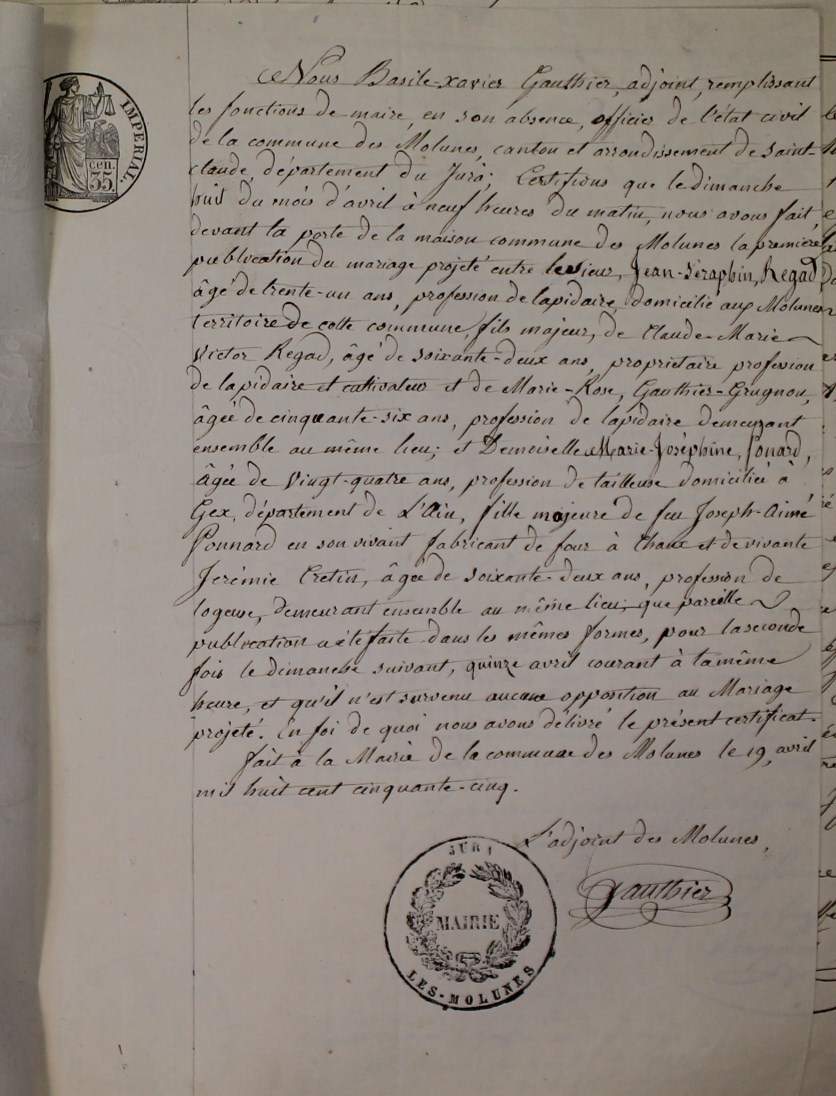 IMPERIAL.
cen.
35.
Nous Basile-xavier Gauthier, adjoint, remplissant
les fonctions de maire, en son absence, officier de l'état civil
de la commune des Molunes, canton et arrondissement de saint-
claude, département du Jura; Certifions que le dimanche
huit du mois d'avril à neuf heures du matin, nous avons fait,
devant la porte de la maison commune des Molunes la première
publication du mariage projeté entre le sieur, Jean-Séraphin, Regad
âgé de trente-un ans, profession de lapidaire, domicilié aux Molunes
territoire de cette commune, fils majeur, de Claude-Marie
Victor Regad, âgé de soixante-deux ans, propriétaire profession
de lapidaire et cultivateur et de Marie-Rose, Gauthier-Grugnon,
âgée de cinquante-six ans, profession de lapidaire demeurant
ensemble au même lieu; et Demoiselle Marie-Joséphine, Ponard,
âgée de vingt-quatre ans, profession de tailleuse domiciliée à
Gex, département de L'Ain, fille majeure de feu Joseph-Aimé
Ponnard en son vivant fabricant de four à Chaux et de vivante
Jerémie Cretin, âgée de soixante-deux ans, profession de
logeuse, demeurant ensemble au même lieu; que pareille
publication a été faite dans les mêmes formes, pour la seconde
fois le dimanche suivant, quinze avril courant à la même
heure, et qu'il n'est survenu aucune opposition au Mariage
projeté. En foi de quoi nous avons délivré le présent certificat.
fait à la Mairie de la commune des Molunes le 19, avril
mil huit cent cinquante-cinq.
L'adjoint des Molunes,
Gauthier
JURA
MAIRIE
LES-MOLUNES